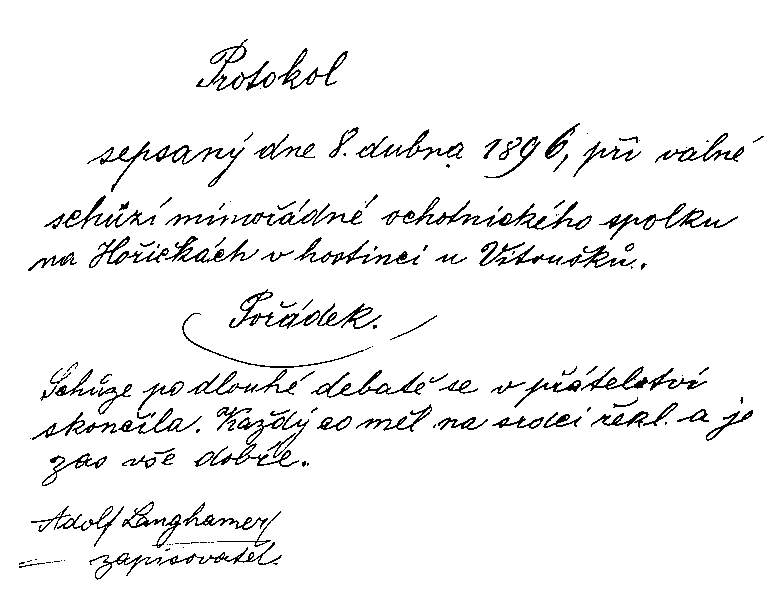 Protokol
sepsaný dne 8. dubna 1896, při valné
schůzi mimořádné ochotnického spolku
na Hořičkách v hostinci u Vítoušků.
Pořádek.
Schůze po dlouhé debatě se v přátelství
skončila. Každý co měl na srdci řekl a je
zas vše dobře.
Adolf Langhamer
zapisovatel.